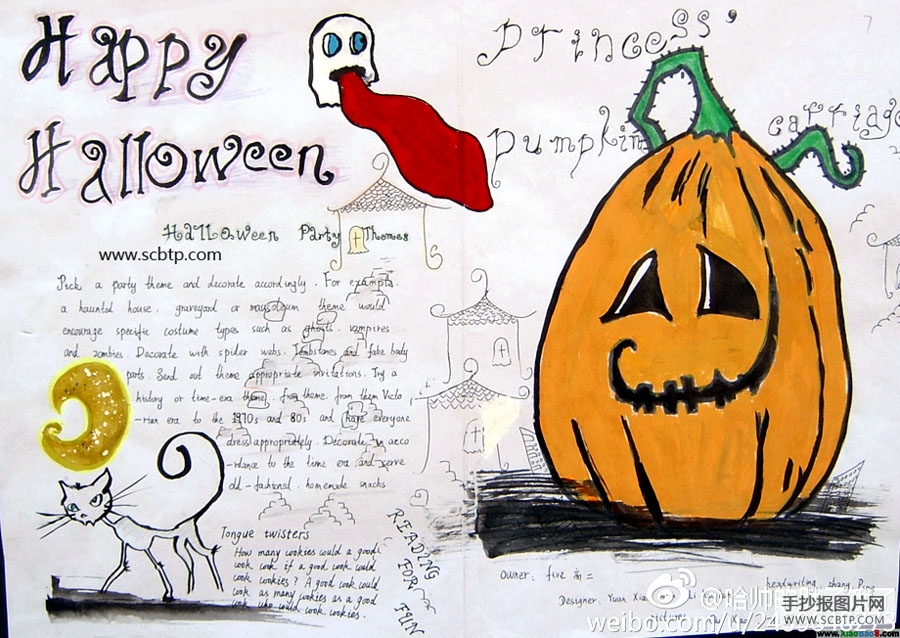 Happy
Halloween
Princess'
pumpkin
carriage
7
Halloween Party Themes
www.scbtp.com
Pick a party theme and decorate accordingly. For example.
a haunted house, graveyard or mausoleum theme would
encourage specific costume types such as ghosts. vampires
and zombies. Decorate with spider webs. Tombstones and fake body
parts. Send out theme appropriate invitations. Try a
history or time-era theme. from theme. from them Victo
-rian era to the 1970s and 80s and have everyone
dress appropriately. Decorate in acco
-rdance to the time era and serve
old-fashioned. homemade snacks
READING
FOR
FUN
Tongue twisters
How many cookies could a good
cook cook if a good cook could
cook cookies? A good cook could
cook as many cookies as a good
cook who could cook cookies.
Owner: five 高二
Designer: Yuan Xia Li
headwriting. zhang. Ping
picture: Xu
@哈帅
weibo.com/u/24
手抄报图片网
WWW.SCBTP.COM
www.XiaoBao8.com